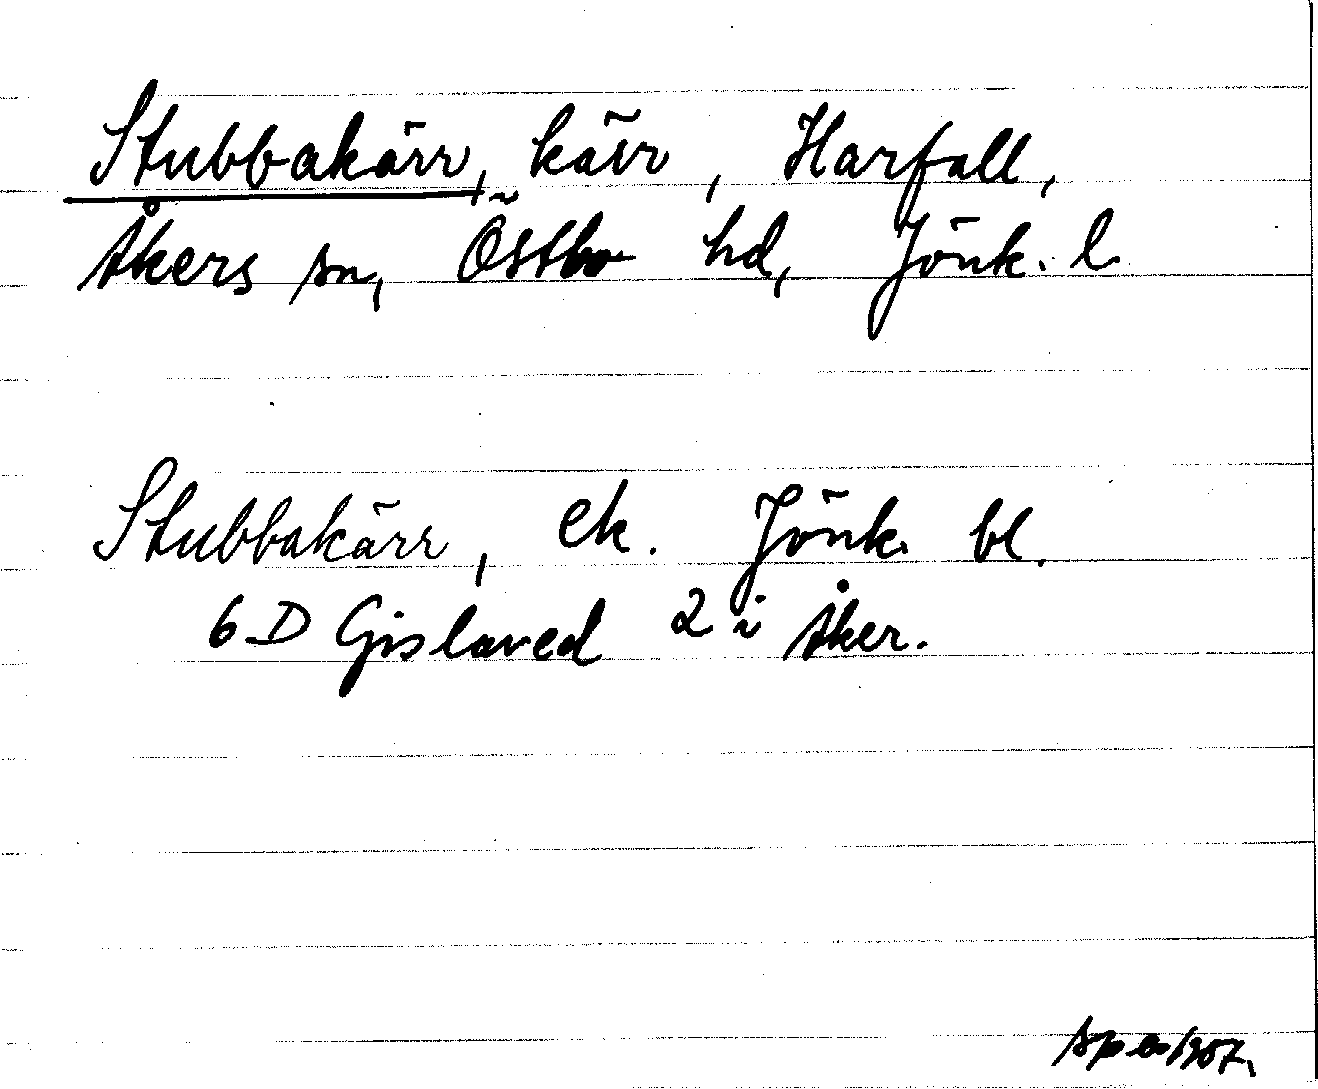 Stubbakärr, kärr, Harfall,
Åkers sn, Östbo hd, Jönk. l
Stubbakärr, ek. Jönk. bl.
6D Gislaved 2 i Åker.